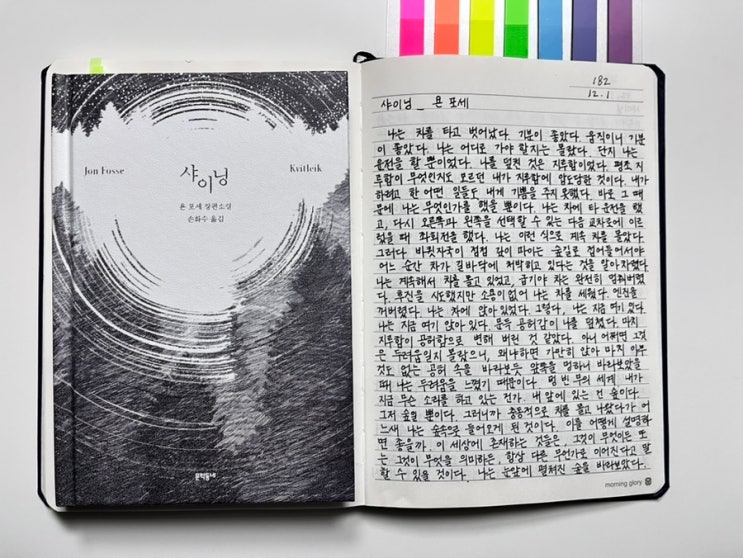 Jon Fosse
샤이닝
Kvitleik
욘 포세 장편소설
손화수 옮김
문학동네
182
12. 1
샤이닝 _ 욘 포세
나는 차를 타고 벗어났다. 기분이 좋았다. 움직이니 기분
이 좋았다. 나는 어디로 가야 할지는 몰랐다. 단지 나는
운전을 할 뿐이었다. 나를 덮친 것은 지루함이었다. 평소 지
루함이 무엇인지도 모르던 내가 지루함에 압도당한 것이다. 내가
하려고 한 어떤 일들도 내게 기쁨을 주지 못했다. 바로 그 때
문에 나는 무엇인가를 했을 뿐이다. 나는 차에 타 운전을 했
고, 다시 오른쪽과 왼쪽을 선택할 수 있는 다음 교차로에 이르
렀을 때 좌회전을 했다. 나는 이런 식으로 계속 차를 몰았다.
그러다 바큇자국이 점점 깊이 파이는 숲길로 접어들어서야
어느 순간 차가 길바닥에 처박히고 있다는 것을 알아차렸다.
나는 계속해서 차를 몰고 있었고, 급기야 차는 완전히 멈춰버렸
다. 후진을 시도했지만 소용이 없어 나는 차를 세웠다. 엔진을
꺼버렸다. 나는 차에 앉아 있었다. 그렇다, 나는 지금 여기 있다.
나는 지금 여기 앉아 있다. 문득 공허감이 나를 덮쳤다. 마치
지루함이 공허함으로 변해 버린 것 같았다. 아니 어쩌면 그것
은 두려움일지 몰랐으니, 왜냐하면 가만히 앉아 마치 아무
것도 없는 공허 속을 바라보듯 앞쪽을 멍하니 바라보았을
때 나는 두려움을 느꼈기 때문이다. 텅 빈 무의 세계. 내가
지금 무슨 소리를 하고 있는 건가. 내 앞에 있는 건 숲이다.
그저 숲일 뿐이다. 그러니까 충동적으로 차를 몰고 나왔다가 어
느새 나는 숲속으로 들어오게 된 것이다. 이를 어떻게 설명하
면 좋을까. 이 세상에 존재하는 것들은, 그것이 무엇이든 또
는 그것이 무엇을 의미하든, 항상 다른 무언가로 이어진다고 말
할 수 있을 것이다. 나는 눈앞에 펼쳐진 숲을 바라보았다.
morning glory